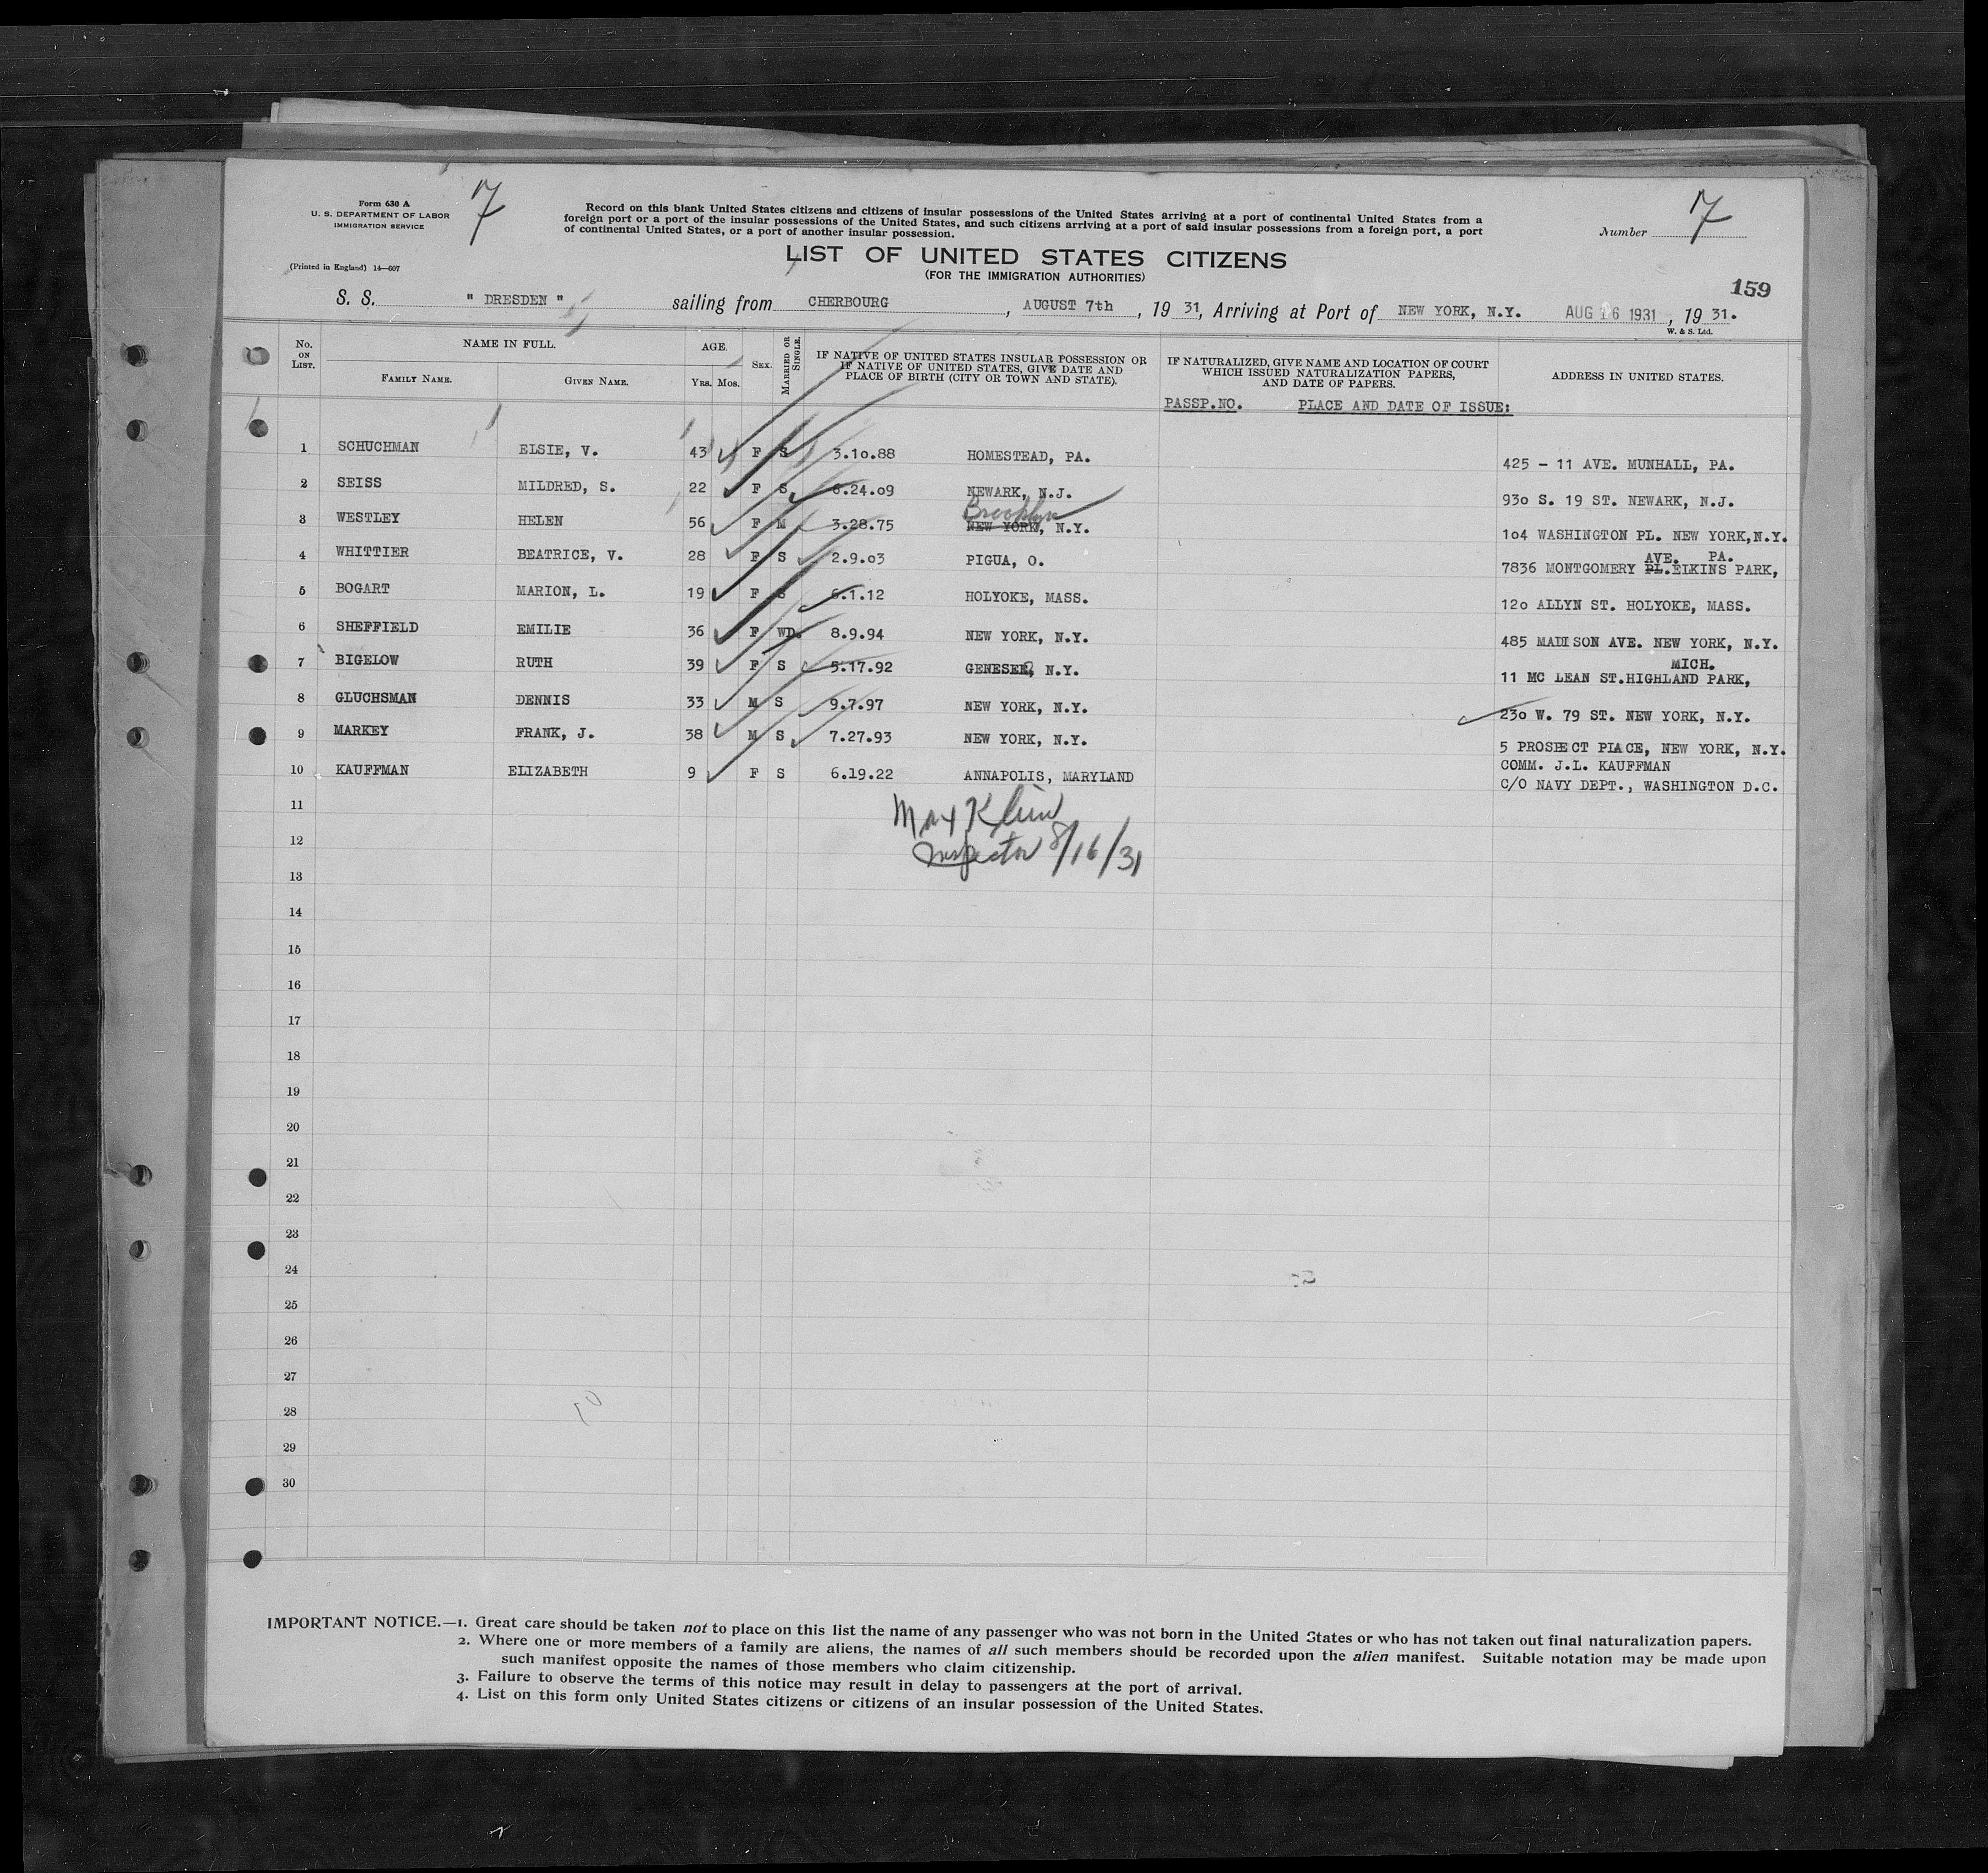 Form 630 A
U. S. DEPARTMENT OF LABOR
IMMIGRATION SERVICE
(Printed in England) 14—607
7
Record on this blank United States citizens and citizens of insular possessions of the United States arriving at a port of continental United States from a
foreign port or a port of the insular possessions of the United States, and such citizens arriving at a port of said insular possessions from a foreign port, a port
of continental United States, or a port of another insular possession.
Number 7
LIST OF UNITED STATES CITIZENS
(FOR THE IMMIGRATION AUTHORITIES)
159
S. S. " DRESDEN " sailing from CHERBOURG, AUGUST 7th, 19 31, Arriving at Port of NEW YORK, N.Y. AUG 16 1931, 19 31.
W. & S. Ltd.
No. ON LIST. NAME IN FULL. FAMILY NAME. GIVEN NAME. AGE. Yrs. Mos. SEX. MARRIED OR SINGLE. IF NATIVE OF UNITED STATES INSULAR POSSESSION OR IF NATIVE OF UNITED STATES, GIVE DATE AND PLACE OF BIRTH (CITY OR TOWN AND STATE). IF NATURALIZED, GIVE NAME AND LOCATION OF COURT WHICH ISSUED NATURALIZATION PAPERS, AND DATE OF PAPERS. ADDRESS IN UNITED STATES.
PASSP.NO. PLACE AND DATE OF ISSUE:
1 SCHUCHMAN ELSIE, V. 43 F S 3.10.88 HOMESTEAD, PA. 425 - 11 AVE. MUNHALL, PA.
2 SEISS MILDRED, S. 22 F S 6.24.09 NEWARK, N.J. 930 S. 19 ST. NEWARK, N.J.
Brooklyn
3 WESTLEY HELEN 56 F M 3.28.75 NEW YORK, N.Y. 104 WASHINGTON PL. NEW YORK,N.Y.
AVE. PA.
4 WHITTIER BEATRICE, V. 28 F S 2.9.03 PIGUA, O. 7836 MONTGOMERY PL.ELKINS PARK,
5 BOGART MARION, L. 19 F S 6.1.12 HOLYOKE, MASS. 120 ALLYN ST. HOLYOKE, MASS.
6 SHEFFIELD EMILIE 36 F WD. 8.9.94 NEW YORK, N.Y. 485 MADISON AVE. NEW YORK, N.Y.
MICH.
7 BIGELOW RUTH 39 F S 5.17.92 GENESEO, N.Y. 11 MC LEAN ST.HIGHLAND PARK,
8 GLUCHSMAN DENNIS 33 M S 9.7.97 NEW YORK, N.Y. 230 W. 79 ST. NEW YORK, N.Y.
9 MARKEY FRANK, J. 38 M S 7.27.93 NEW YORK, N.Y. 5 PROSPECT PLACE, NEW YORK, N.Y.
COMM. J.L. KAUFFMAN
10 KAUFFMAN ELIZABETH 9 F S 6.19.22 ANNAPOLIS, MARYLAND C/O NAVY DEPT., WASHINGTON D.C.
11
Max Klein
12
Inspector 8/16/31
13
14
15
16
17
18
19
20
21
22
23
24
25
26
27
28
29
30
IMPORTANT NOTICE.—1. Great care should be taken not to place on this list the name of any passenger who was not born in the United States or who has not taken out final naturalization papers.
2. Where one or more members of a family are aliens, the names of all such members should be recorded upon the alien manifest. Suitable notation may be made upon
such manifest opposite the names of those members who claim citizenship.
3. Failure to observe the terms of this notice may result in delay to passengers at the port of arrival.
4. List on this form only United States citizens or citizens of an insular possession of the United States.